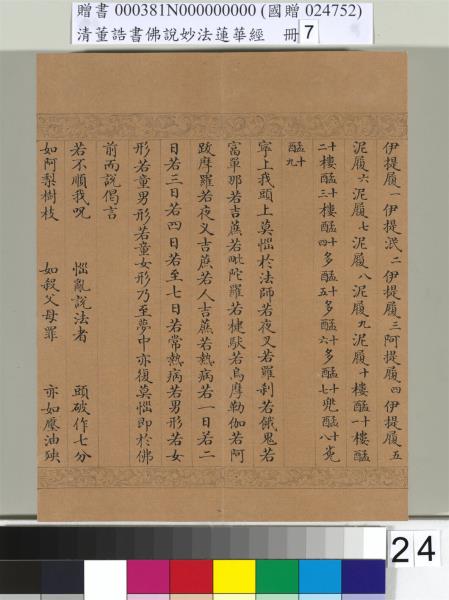 贈書 000381N000000000 (國贈 024752)
清董誥書佛說妙法蓮華經 冊 7
伊提履一伊提泯二伊提履三阿提履四伊提履五
泥履六泥履七泥履八泥履九泥履十樓醯十一樓醯
十二樓醯十三樓醯十四多醯十五多醯十六多醯十七兜醯十八㝹
醯十九
寧上我頭上莫惱於法師若夜叉若羅剎若餓鬼若
富單那若吉蔗若毗陀羅若犍馱若烏摩勒伽若阿
跋摩羅若夜叉吉蔗若人吉蔗若熱病若一日若二
日若三日若四日若至七日若常熱病若男形若女
形若童男形若童女形乃至夢中亦復莫惱即於佛
前而說偈言
若不順我呪 惱亂說法者 頭破作七分
如阿梨樹枝 如殺父母罪 亦如壓油殃
24